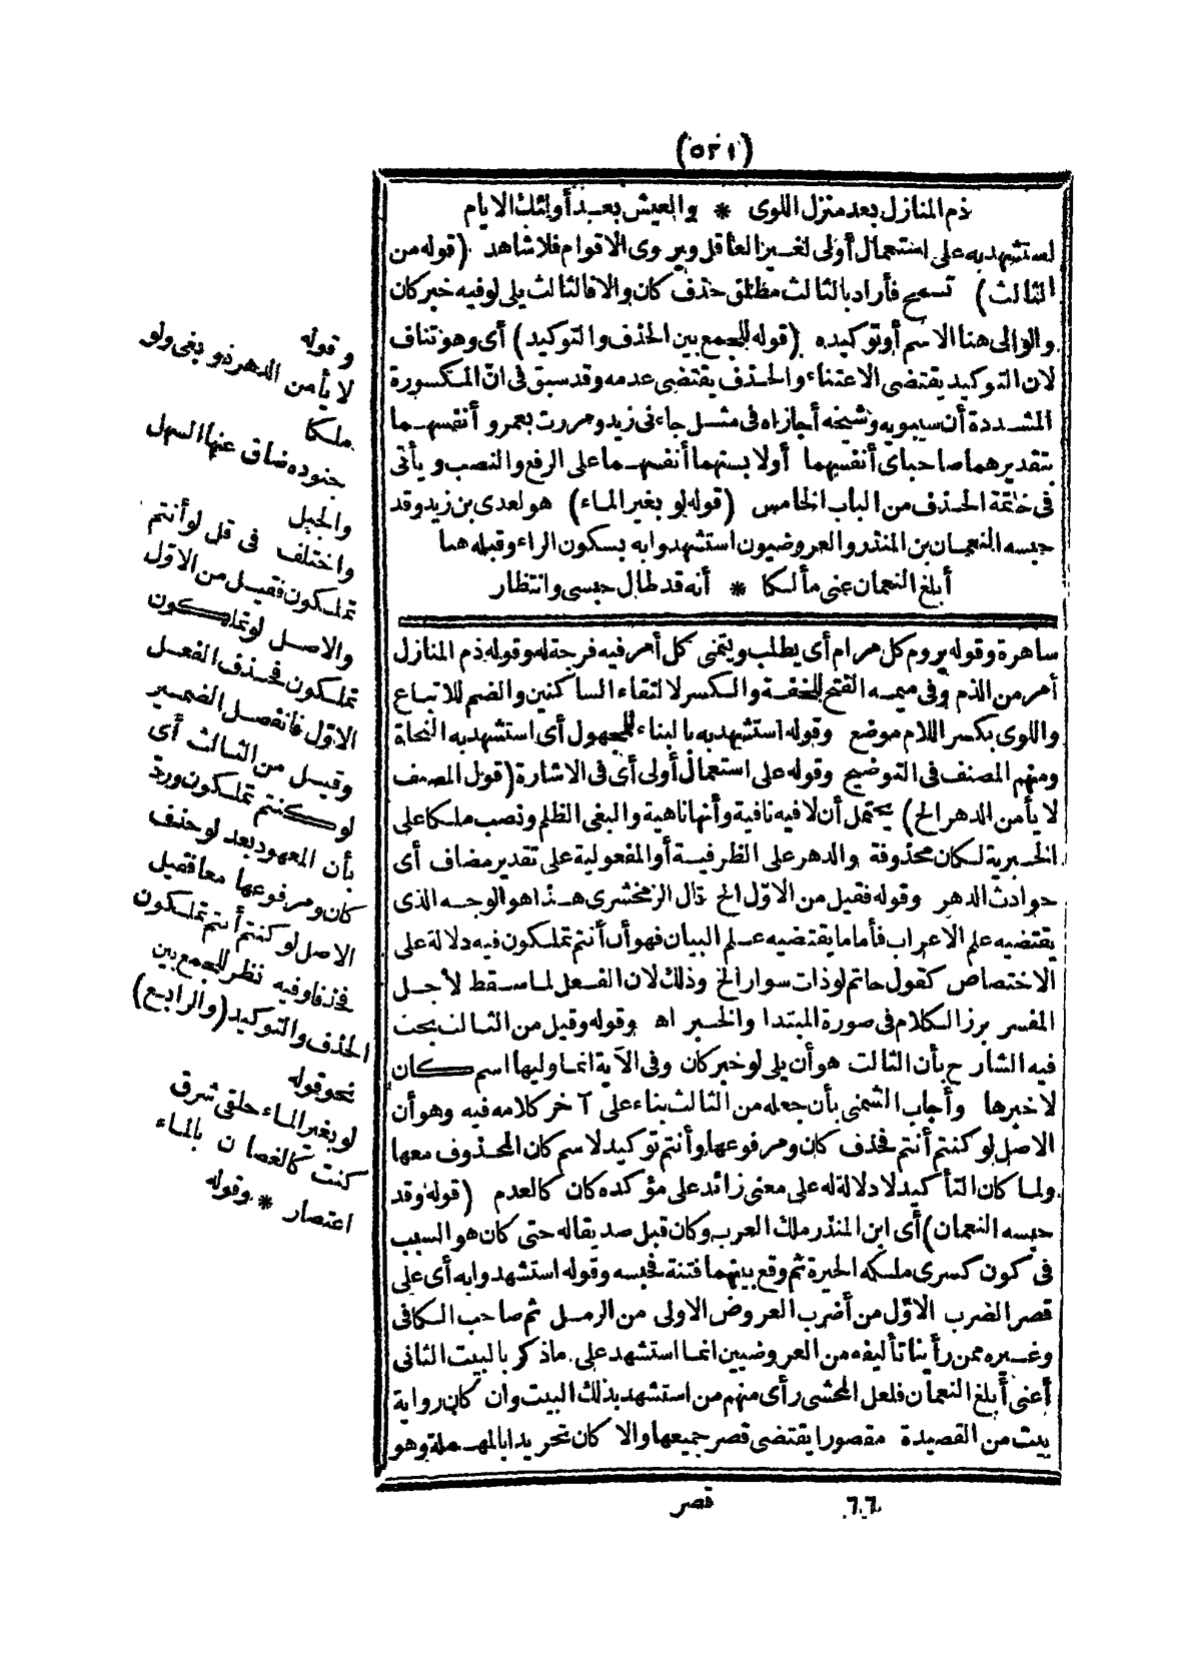 (٥٢١)
ذم المنازل بعد منزل اللوى * والعيش بعد أولئك الايام
استشهد به على استعمال أولى لغير العاقل ويروى الاقوام فلا شاهد (قوله من
الثالث) تسمح فأراد بالثالث مطلق حذف كان والا فالثالث يلى لو فيه خبر كان
والوالى هنا الاسم أو توكيده (قوله للجمع بين الحذف والتوكيد) أى وهو تناف
لان التوكيد يقتضى الاعتناء والحذف يقتضى عدمه وقد سبق فى ان المكسورة
المشددة أن سيبويه وشيخه أجازاه فى مثل جاءنى زيد ومررت بعمرو أنفسهما
بتقدير هما صاحباى أنفسهما أو لابستهما أنفسهما على الرفع والنصب ويأتى
فى خاتمة الحذف من الباب الخامس (قوله لو بغير الماء) هو لعدى بن زيد وقد
حبسه النعمان بن المنذر والعروضيون استشهدوا به بسكون الراء وقبله هما
أبلغ النعمان عنى مألكا * أنه قد طال حبسى وانتظار
ساهرة وقوله يروم كل مرام أى يطلب ويتمنى كل أمر فيه فرجة له وقوله ذم المنازل
أمر من الذم وفى ميمه الفتح للخفة والكسر لالتقاء الساكنين والضم للاتباع
واللوى بكسر اللام موضع وقوله استشهد به بالبناء للمجهول أى استشهد به النحاة
ومنهم المصنف فى التوضيح وقوله على استعمال أولى أى فى الاشارة (قول المصنف
لا يأمن الدهر الخ) يحتمل أن لا فيه نافية وأنها ناهية والبغى الظلم ونصب ملكا على
الخبرية لكان محذوفة والدهر على الظرفية أو المفعولية على تقدير مضاف أى
حوادث الدهر وقوله فقيل من الاوّل الخ قال الزمخشرى هذا هو الوجه الذى
يقتضيه علم الاعراب فأما ما يقتضيه علم البيان فهو أن أنتم تملكون فيه دلالة على
الاختصاص كقول حاتم لو ذات سوار الخ وذلك لان الفعل لما سقط لأجل
المفسر برز الكلام فى صورة المبتدا والخبر اه وقوله وقيل من الثالث بحث
فيه الشارح بأن الثالث هو أن يلى لو خبر كان وفى الآية انما وليها اسم كان
لا خبرها وأجاب الشمنى بأن جعله من الثالث بناء على آخر كلامه فيه وهو أن
الاصل لو كنتم أنتم فحذف كان ومرفوعها وأنتم توكيد لاسم كان المحذوف معها
ولما كان التأكيد لا دلالة له على معنى زائد على مؤكده كان كالعدم (قوله وقد
حبسه النعمان) أى ابن المنذر ملك العرب وكان قبل صديقا له حتى كان هو السبب
فى كون كسرى ملكه الحيرة ثم وقع بينهما فتنة فحبسه وقوله استشهدوا به أى على
قصر الضرب الاوّل من أضرب العروض الاولى من الرمل ثم صاحب الكافى
وغيره ممن رأينا تأليفه من العروضيين انما استشهد على ما ذكر بالبيت الثانى
أعنى أبلغ النعمان فلعل المحشى رأى منهم من استشهد بذلك البيت وان كان رواية
بيت من القصيدة مقصورا يقتضى قصر جميعها والا كان تحريدا بالمهملة وهو
وقوله
لا يأمن الدهر ذو بغى ولو
ملكا
جنوده ضاق عنها السهل
والجبل
واختلف فى قل لو أنتم
تملكون فقيل من الاوّل
والاصل لو تملكون
تملكون فحذف الفعل
الاوّل فانفصل الضمير
وقيل من الثالث أى
لو كنتم تملكون ورد
بأن المعهود بعد لو حذف
كان ومرفوعها معا فقيل
الاصل لو كنتم أنتم تملكون
فحذفا وفيه نظر للجمع بين
الحذف والتوكيد (والرابع)
نحو قوله
لو بغير الماء حلقى شرق
كنت كالغصان بالماء
اعتصار * وقوله
٦٦
قصر